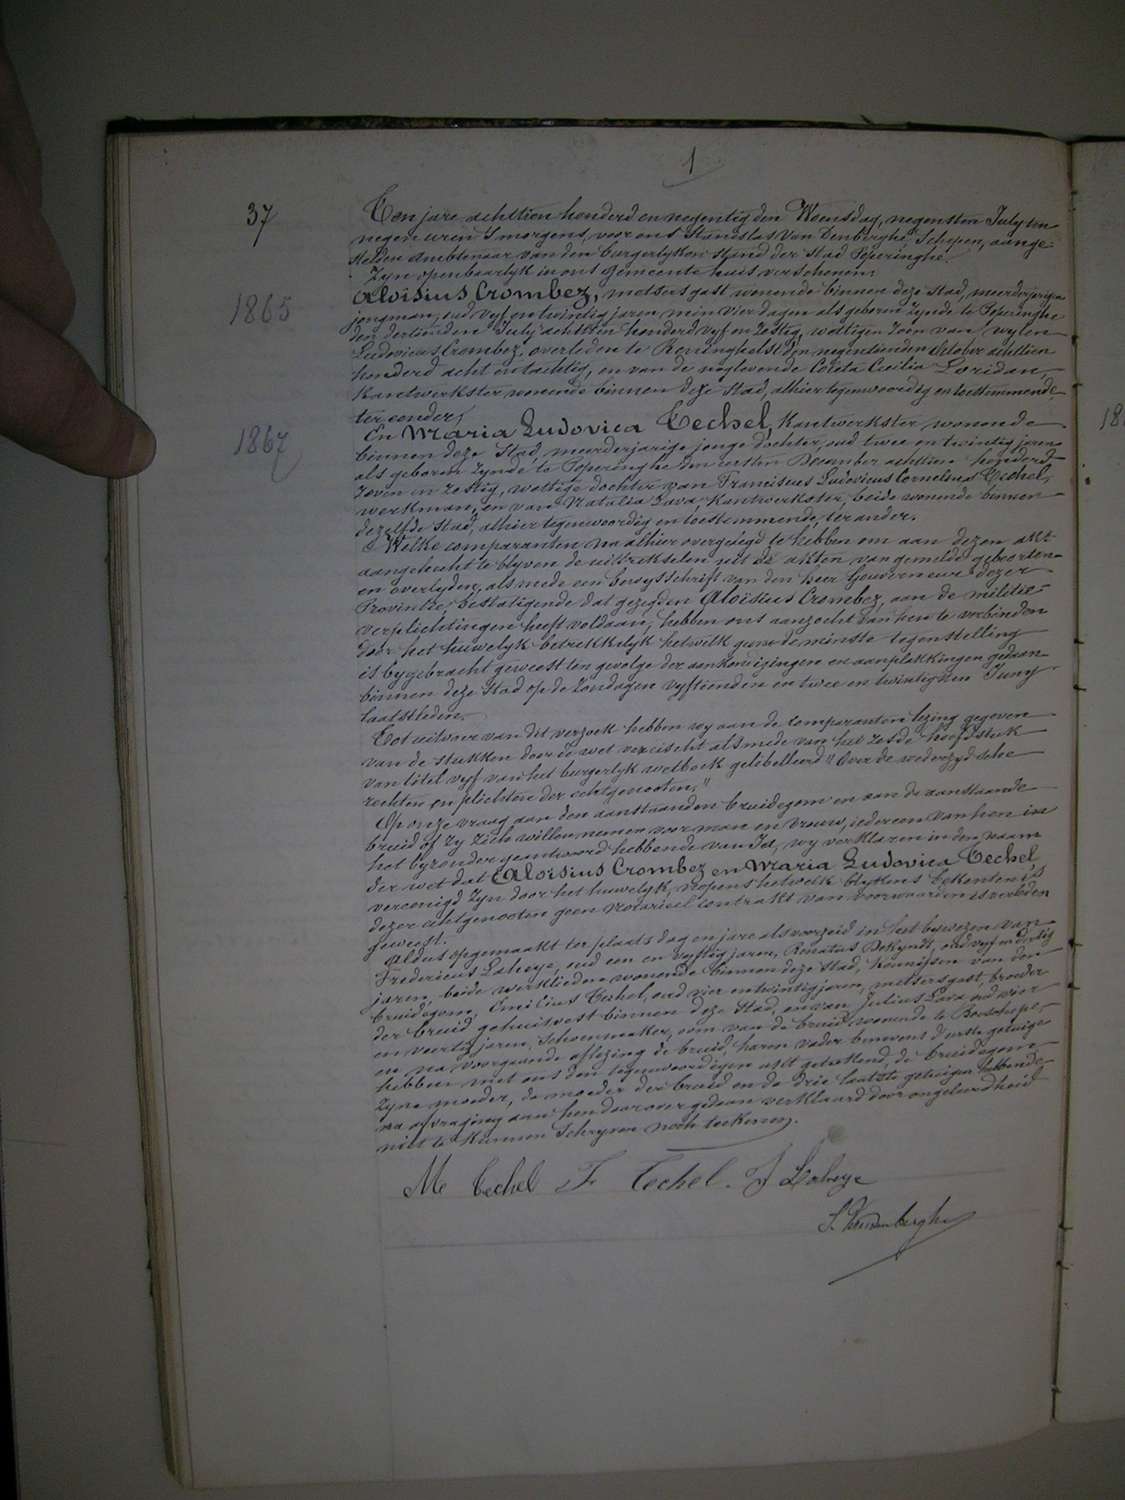 1
37
Ten jare achttien honderd en negentig den Woensdag, negensten July ten
negen uren s'morgens, voor ons Stanislas Van Denberghe, Schepen, aange-
stelden Ambtenaar van den burgerlyken stand der stad Poperinghe.
Zyn openbaarlyk in ons gemeentehuis verschenen:
1865
Aloisius Crombez, metsersgast wonende binnen deze stad, meerderjarige
jongman, oud vyf en twintig jaren min vier dagen als geboren zynde te Poperinghe
den dertienden July achttien honderd vyf en zestig, wettigen zoon van wylen
Ludovicus Crombez, overleden te Reninghelst den negentienden October achttien
honderd acht en tachtig, en van de nog levende Coleta Cecilia Loridan,
kantwerkster wonende binnen deze stad, alhier tegenwoordig en toestemmende
ter eender,
1867
En Maria Ludovica Techel, kantwerkster wonende
binnen deze stad, meerderjarige jonge dochter, oud twee en twintig jaren
als geboren zynde te Poperinghe den eersten December achttien honderd
zeven en zestig, wettige dochter van Franciscus Ludovicus Cornelius Techel,
werkman, en van Natalia Lava, kantwerkster, beide wonende binnen
dezelfde stad, alhier tegenwoordig en toestemmende, ter ander.
Welke comparanten na alhier overgelegd te hebben om aan dezen akt
aangehecht te blyven de uittrekselen uit de akten van gemelde geboorten
en overlyden, als mede een bewysschrift van den heer Gouverneur dezer
Provintie, bestatigende dat gezegden Aloisius Crombez aan de militie-
verplichtingen heeft voldaan, hebben ons aanzocht van hen te verbinden
door het huwelyk betrekkelyk hetwelk geene de minste tegenstelling
is bygebracht geweest ten gevolge der aankondigingen en aanplakkingen gedaan
binnen deze stad op de zondagen vyftienden en twee en twintigsten Juny
laatstleden.
Tot uitvoer van dit verzoek hebben wy aan de comparanten lezing gegeven
van de stukken door de wet vereischt alsmede van het zesde hoofdstuk
van titel vyf van het burgerlyk wetboek gelibelleerd "Over de wederzydsche
rechten en plichten der echtgenooten."
Op onze vraag aan den aanstaanden bruidegom en aan de aanstaande
bruid of zy zich willen nemen voor man en vrouw, iedereen van hen in
het byzonder geantwoord hebbende van Ja, wy verklaren in den naam
der wet dat Aloisius Crombez en Maria Ludovica Techel,
vereenigd zyn door het huwelyk, nopens hetwelk blykens bekentenis
dezer echtgenooten geen notarieel contrakt van voorwaarden is verleden
geweest.
Aldus opgemaakt ter plaats dag en jare als voorzeid in het bywezen van
Fredericus Laheye, oud een en vyftig jaren, Renatus Dekyndt, oud vyf en dertig
jaren, beide werklieden wonende binnen deze stad, kennissen van den
bruidegom, Emilius Techel, oud vier en twintig jaren, metsersgast, broeder
der bruid gehuisvest binnen deze stad, en van Julius Lava oud vier
en veertig jaren, schoenmaker, oom van de bruid, wonende te Boeschepe,
en na voorgaande aflezing de bruid, haren vader benevens d'eerste getuige
hebben met ons den tegenwoordigen akt geteekend, de bruidegom,
zyne moeder, de moeder der bruid en de drie laatste getuigen hebbende
na afvraging aan hen daarover gedaan verklaard door ongeleerdheid
niet te kunnen schryven noch teekenen.
M Techel F Techel. F Laheye
S. Vandenberghe